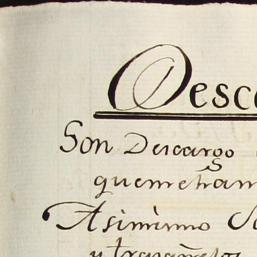 Desc
Son Descargo
quemehan
Asimismo